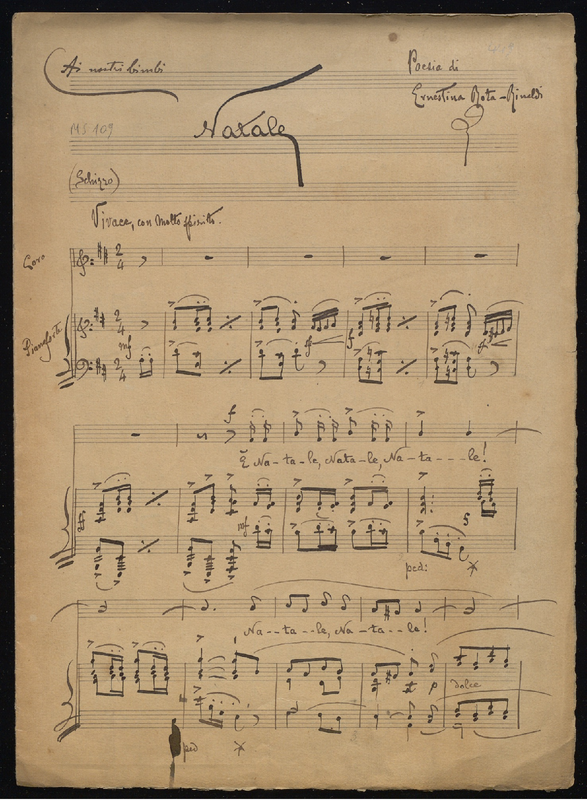 Ai nostri bimbi
Poesia di
Ernestina Rota-Rinaldi
MS 109
Natale
(Schizzo)
Vivace, con molto spirito.
Coro
Pianoforte
2
4
2
4
mf
2
4
f
È Na-ta-le, Nata-le, Na-ta---le!
mf
ped:
Na--ta--le, Na-ta--le!
p
dolce
ped